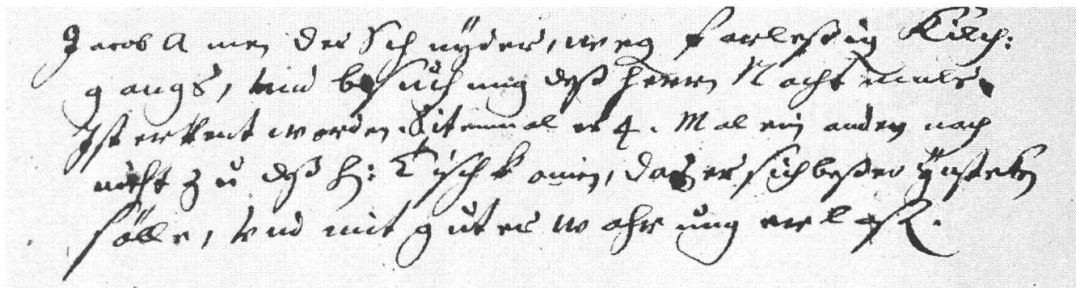 Jacob Amen der Schnyder, weg farleßig Kilch:
gangs, und besuchung deß Herrn Nachtmals.
Ist erkent worden. Sitenmal er 4. Mal ein andern nach
nicht zu deß H: Tisch komen, das er sich beßer
sölle, und mit guter wahrnung